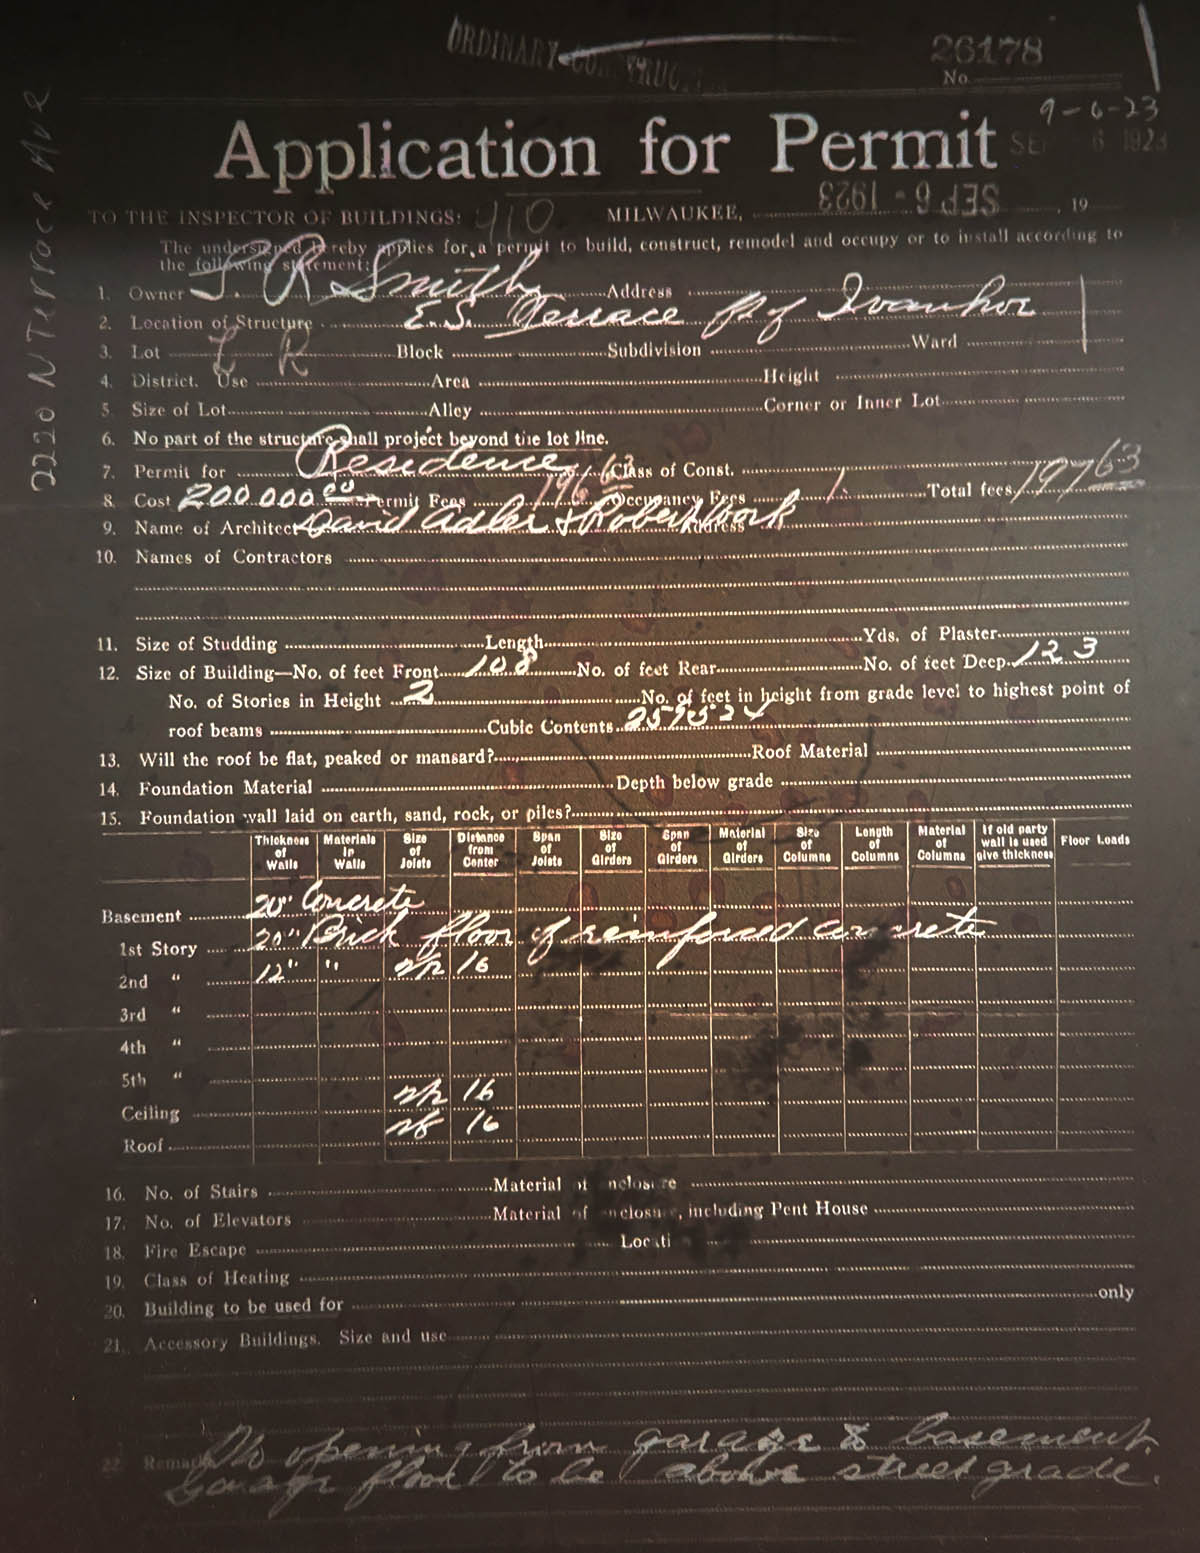 ORDINARY CONSTRUC
26178
No.
9-6-23
SEP 6 1923
2220 N Terrace Ave
Application for Permit
TO THE INSPECTOR OF BUILDINGS: 410 MILWAUKEE, SEP 6 - 1923, 19
The undersigned hereby applies for a permit to build, construct, remodel and occupy or to install according to
the following statement:
1. Owner J. R. Smith Address
2. Location of Structure E.S. Terrace Pt of Ivanhoe
3. Lot Block Subdivision Ward
4. District. Use Area Height
5. Size of Lot Alley Corner or Inner Lot
6. No part of the structure shall project beyond the lot line.
7. Permit for Residence Class of Const.
8. Cost 200.000 00 Permit Fees 196 63 Occupancy Fees 1. Total fees 197 63
9. Name of Architect David Adler & Robert Work Address
10. Names of Contractors
11. Size of Studding Length Yds. of Plaster
12. Size of Building—No. of feet Front 108 No. of feet Rear No. of feet Deep 123
No. of Stories in Height 2 No. of feet in height from grade level to highest point of
roof beams Cubic Contents
13. Will the roof be flat, peaked or mansard? Roof Material
14. Foundation Material Depth below grade
15. Foundation wall laid on earth, sand, rock, or piles?
Thickness of Walls Materials in Walls Size of Joists Distance from Center Span of Joists Size of Girders Span of Girders Material of Girders Size of Columns Length of Columns Material of Columns If old party wall is used give thickness Floor Loads
Basement 20" Concrete
1st Story 20" Brick floor of reinforsed concrete
2nd " 12" " 16
3rd "
4th "
5th "
Ceiling 16
Roof 16
16. No. of Stairs Material of enclosure
17. No. of Elevators Material of enclosure, including Pent House
18. Fire Escape Locati
19. Class of Heating
20. Building to be used for only
21. Accessory Buildings. Size and use
22. Remarks No opening from garage & basement.
Garage floor to be above street grade.